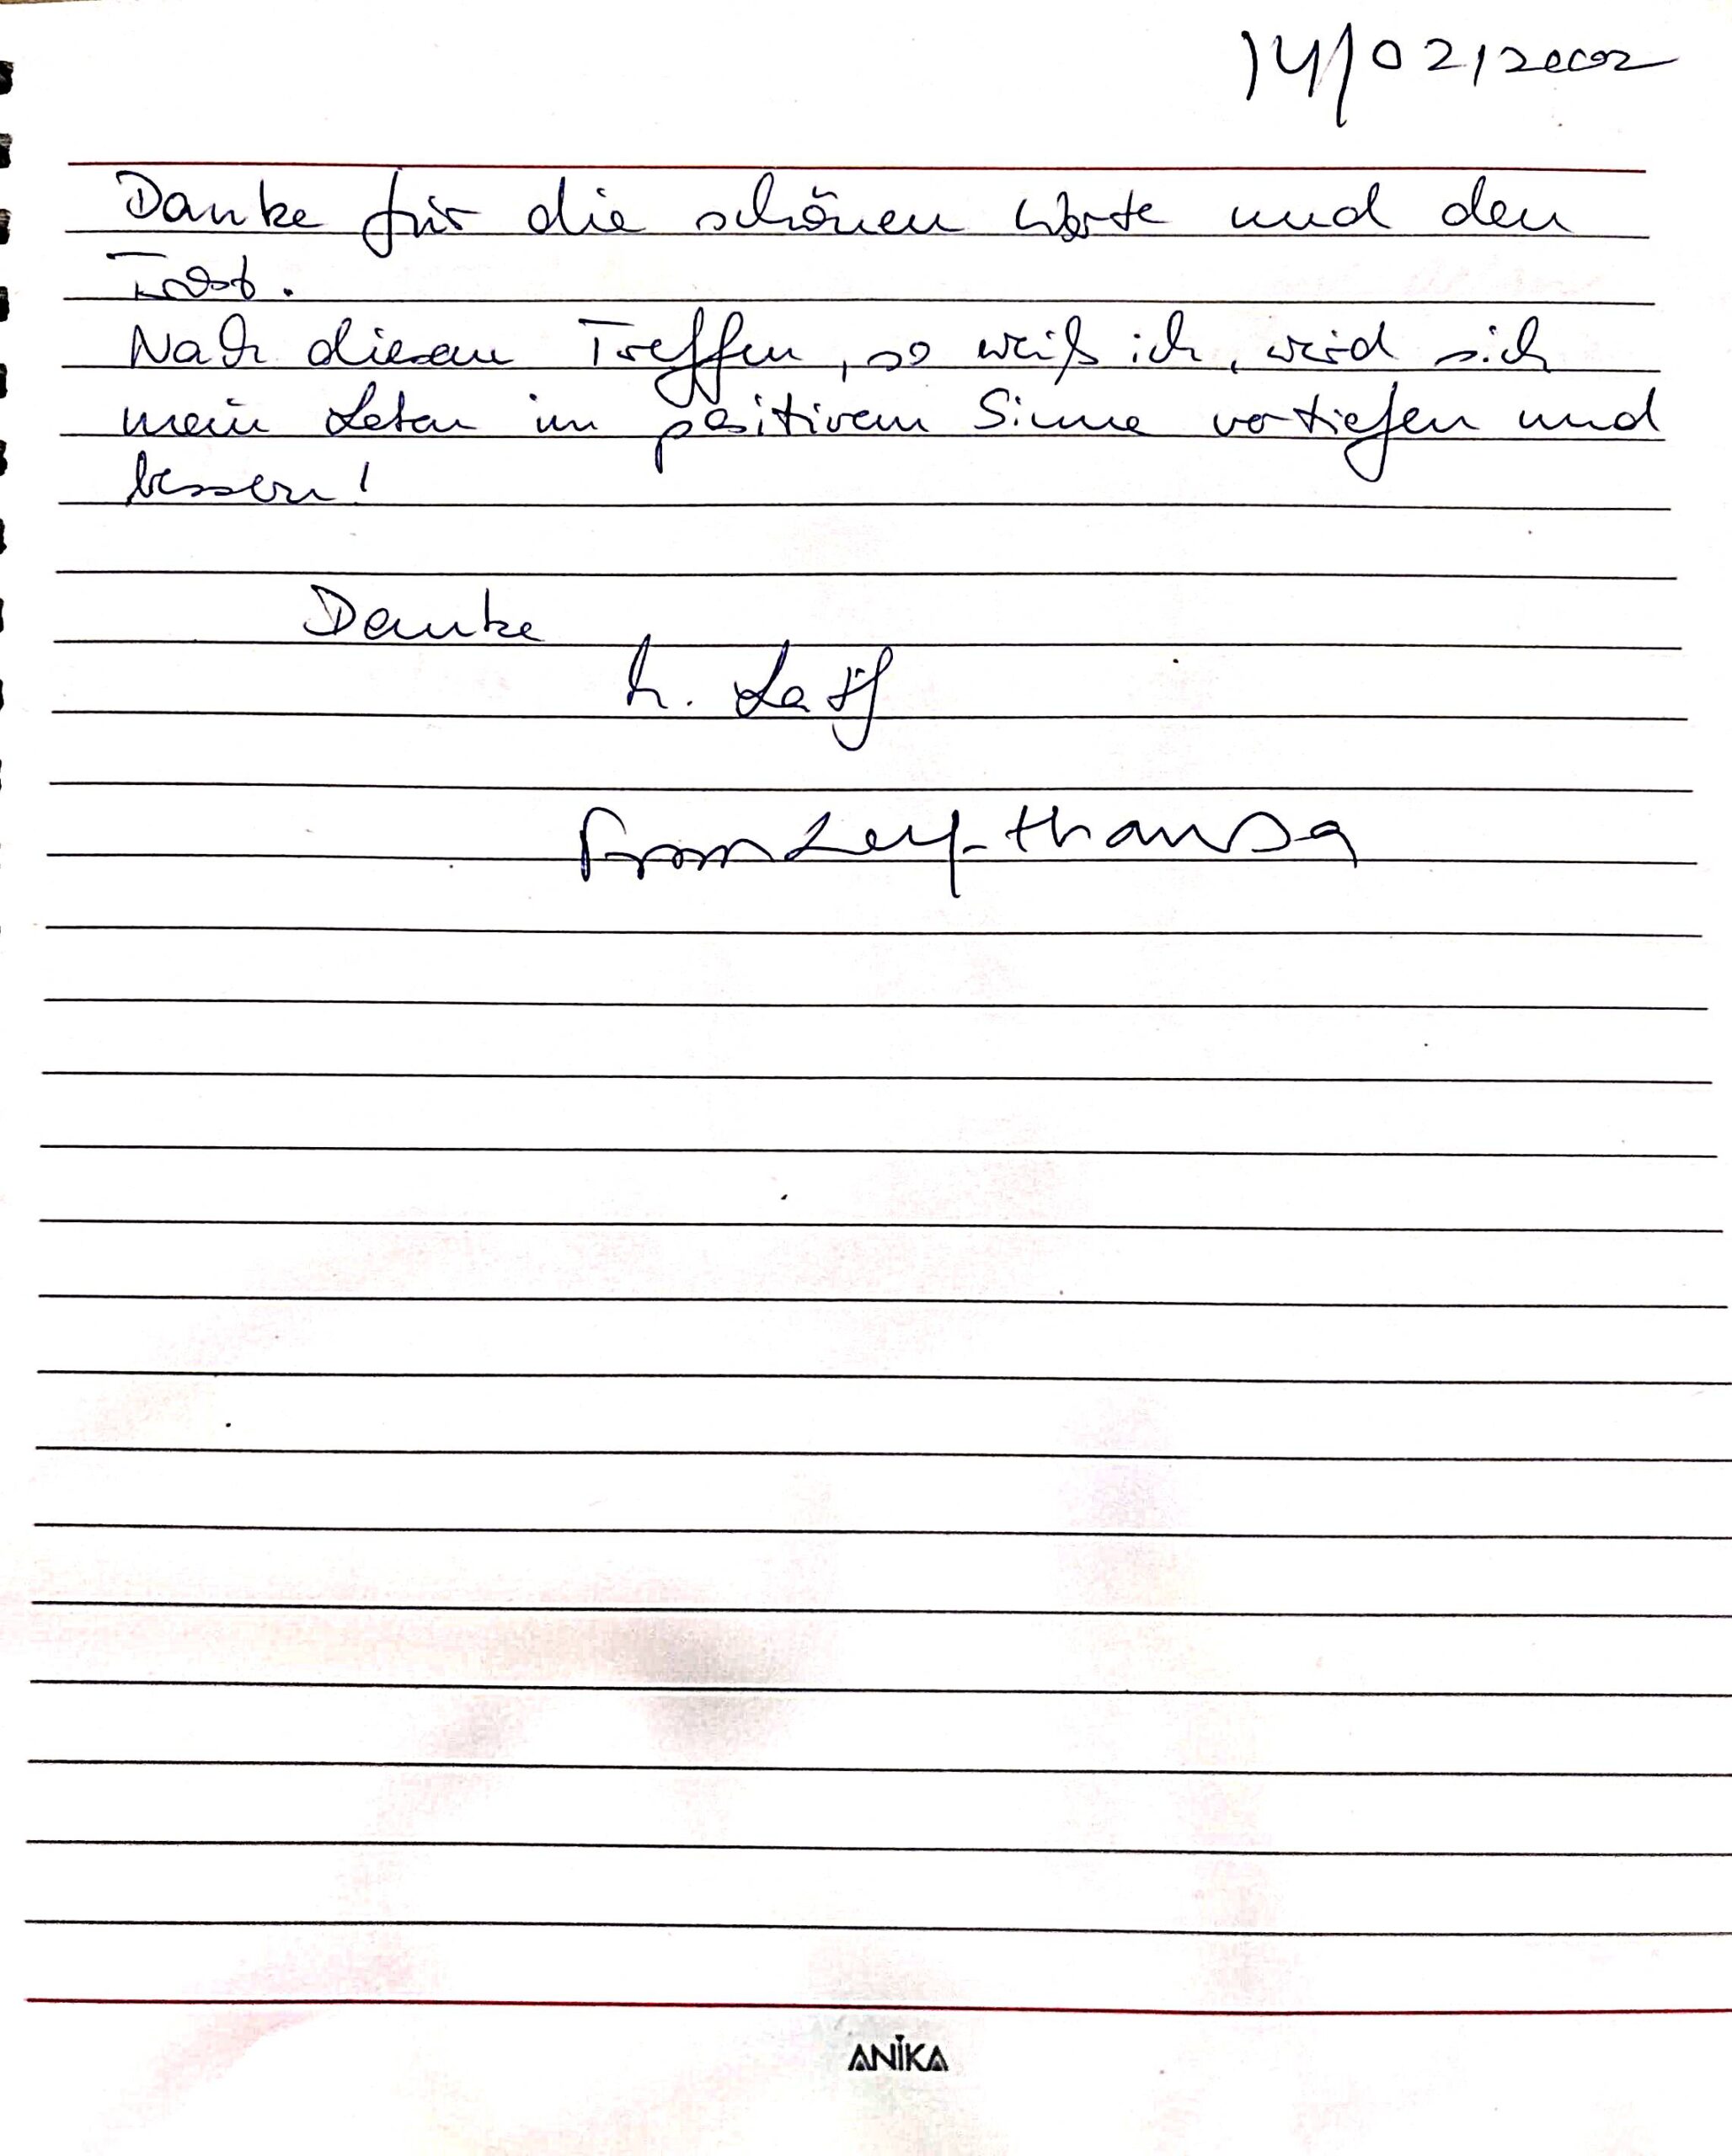 14/02/2002
Danke für die schönen Worte und den
Trost.
Nach diesem Treffen, so weiß ich, wird sich
mein Leben im positivem Sinne vertiefen und
bessern!
Danke
from Luf-thansa
ANIKA